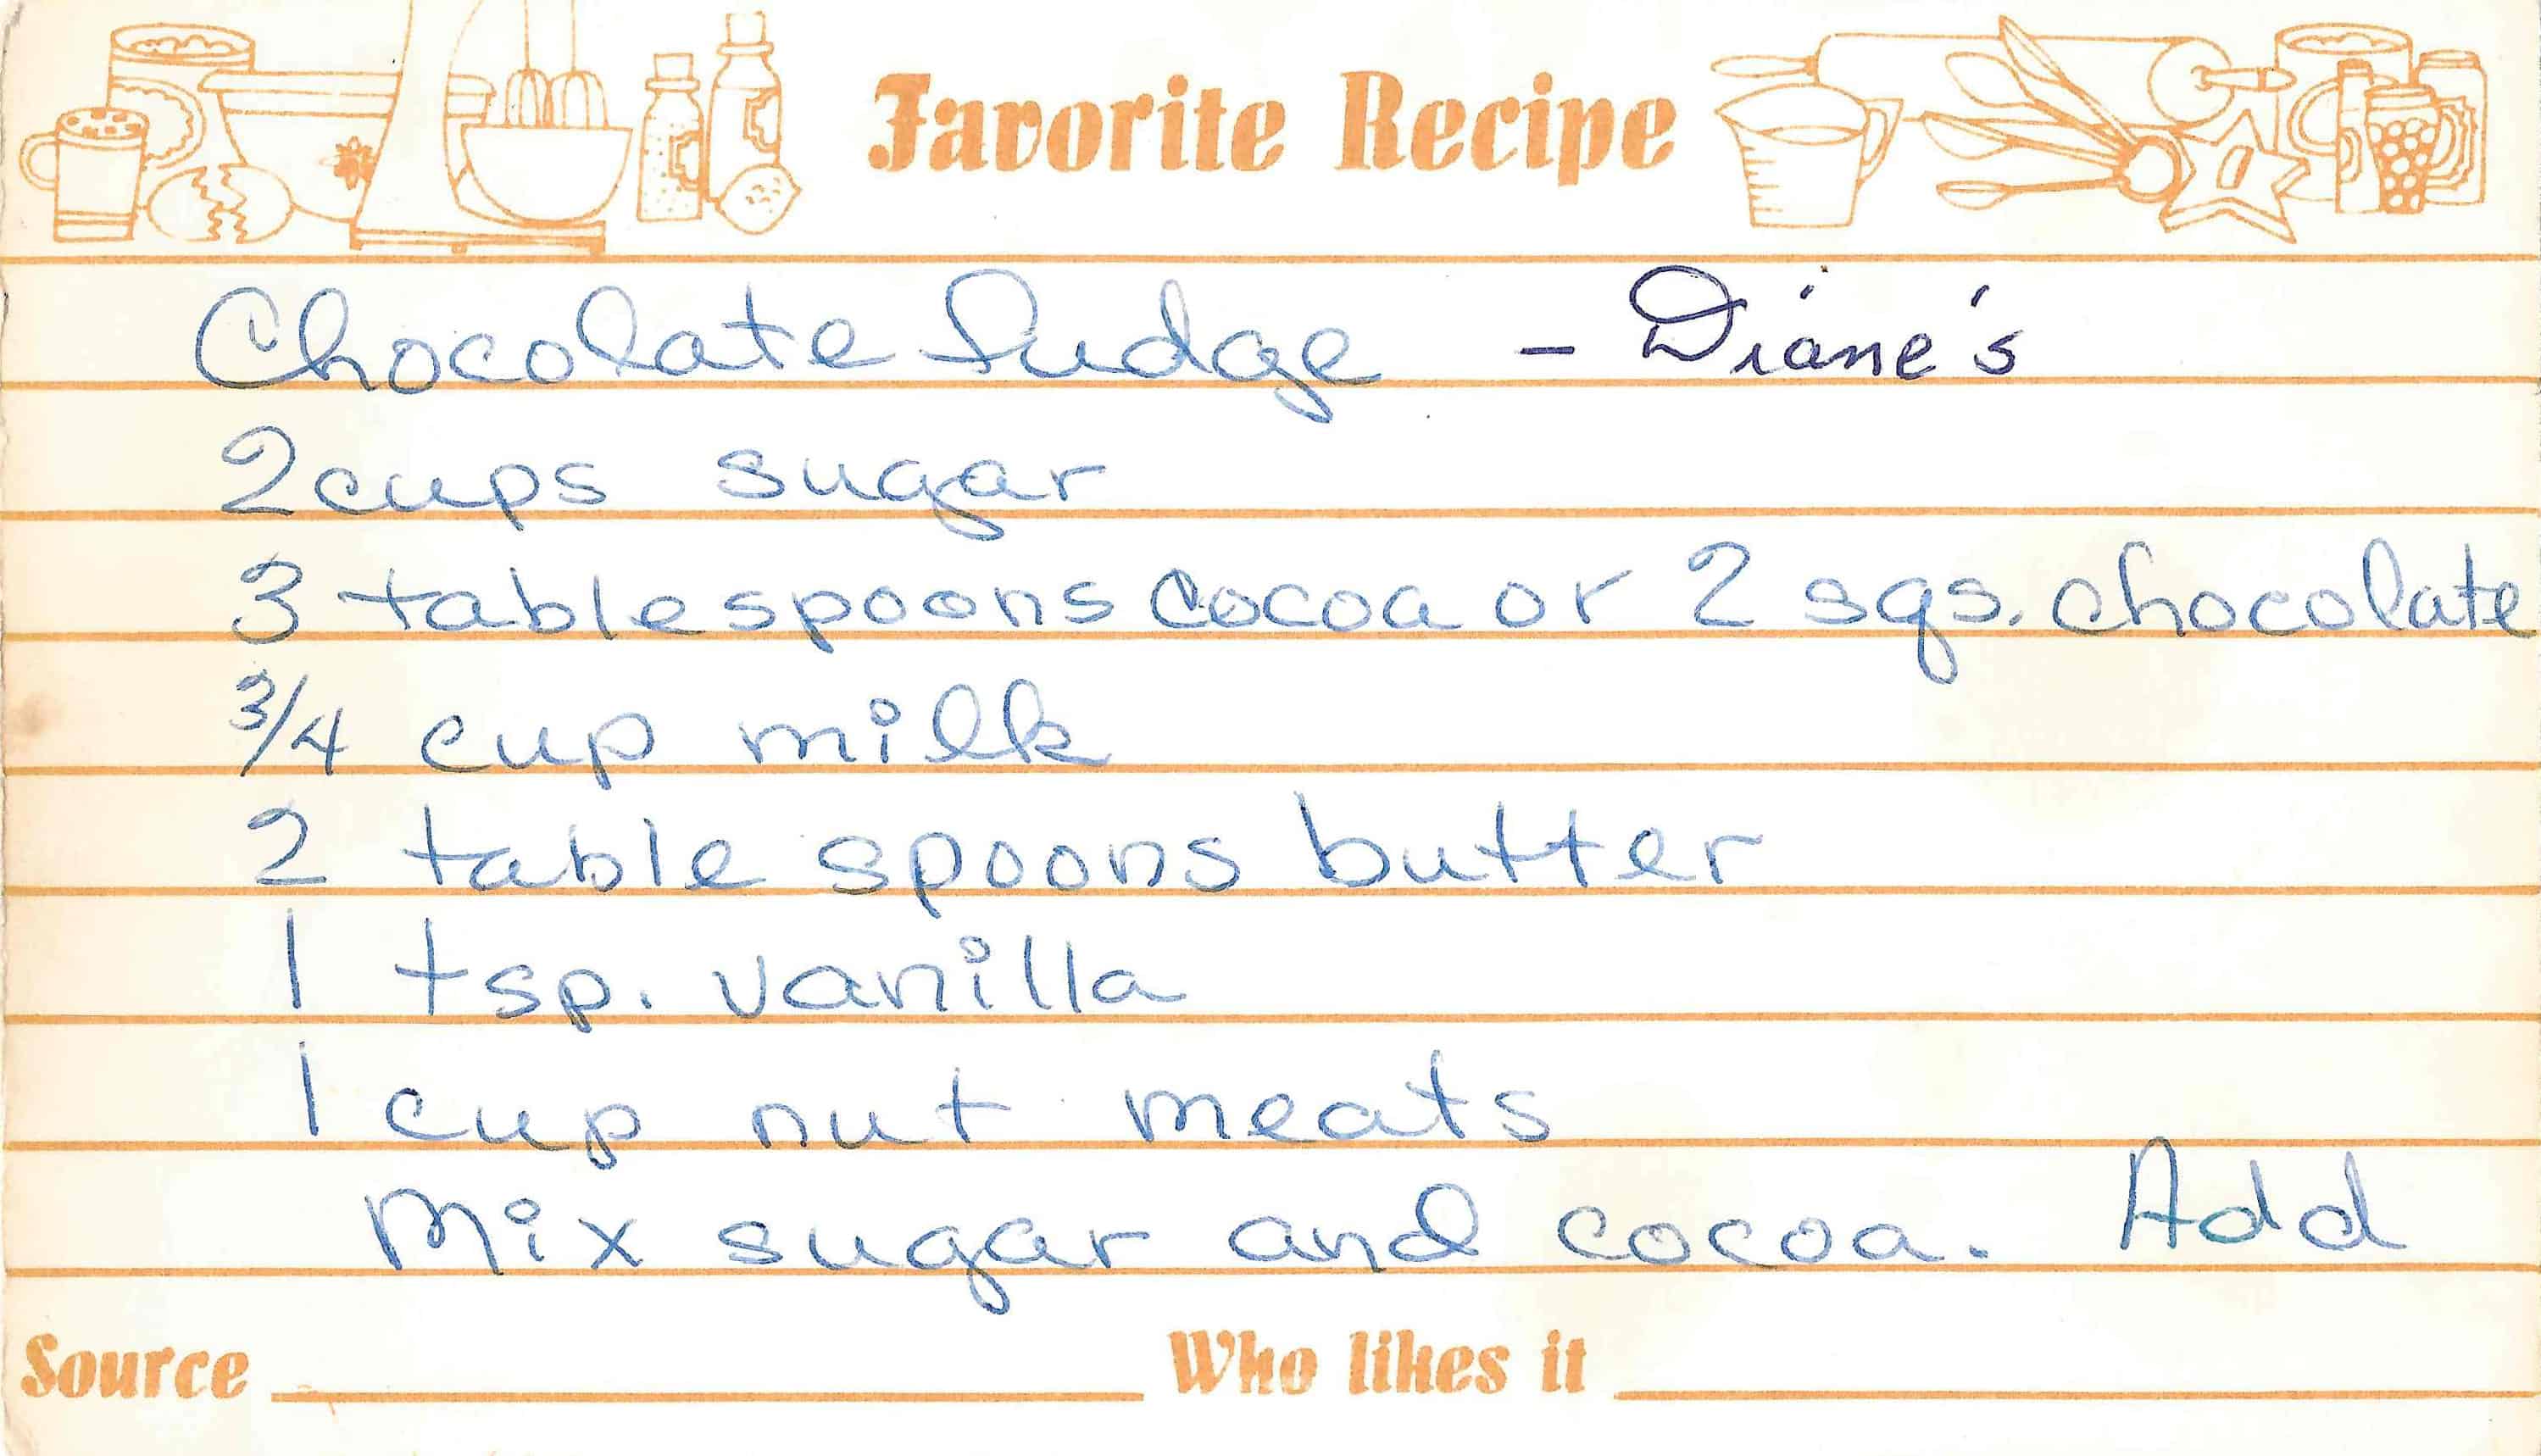 Favorite Recipe
Chocolate fudge - Diane's
2 cups sugar
3 tablespoons cocoa or 2 sqs. chocolate
3/4 cup milk
2 table spoons butter
1 tsp. vanilla
1 cup nut meats
Mix sugar and cocoa. Add
Source Who likes it